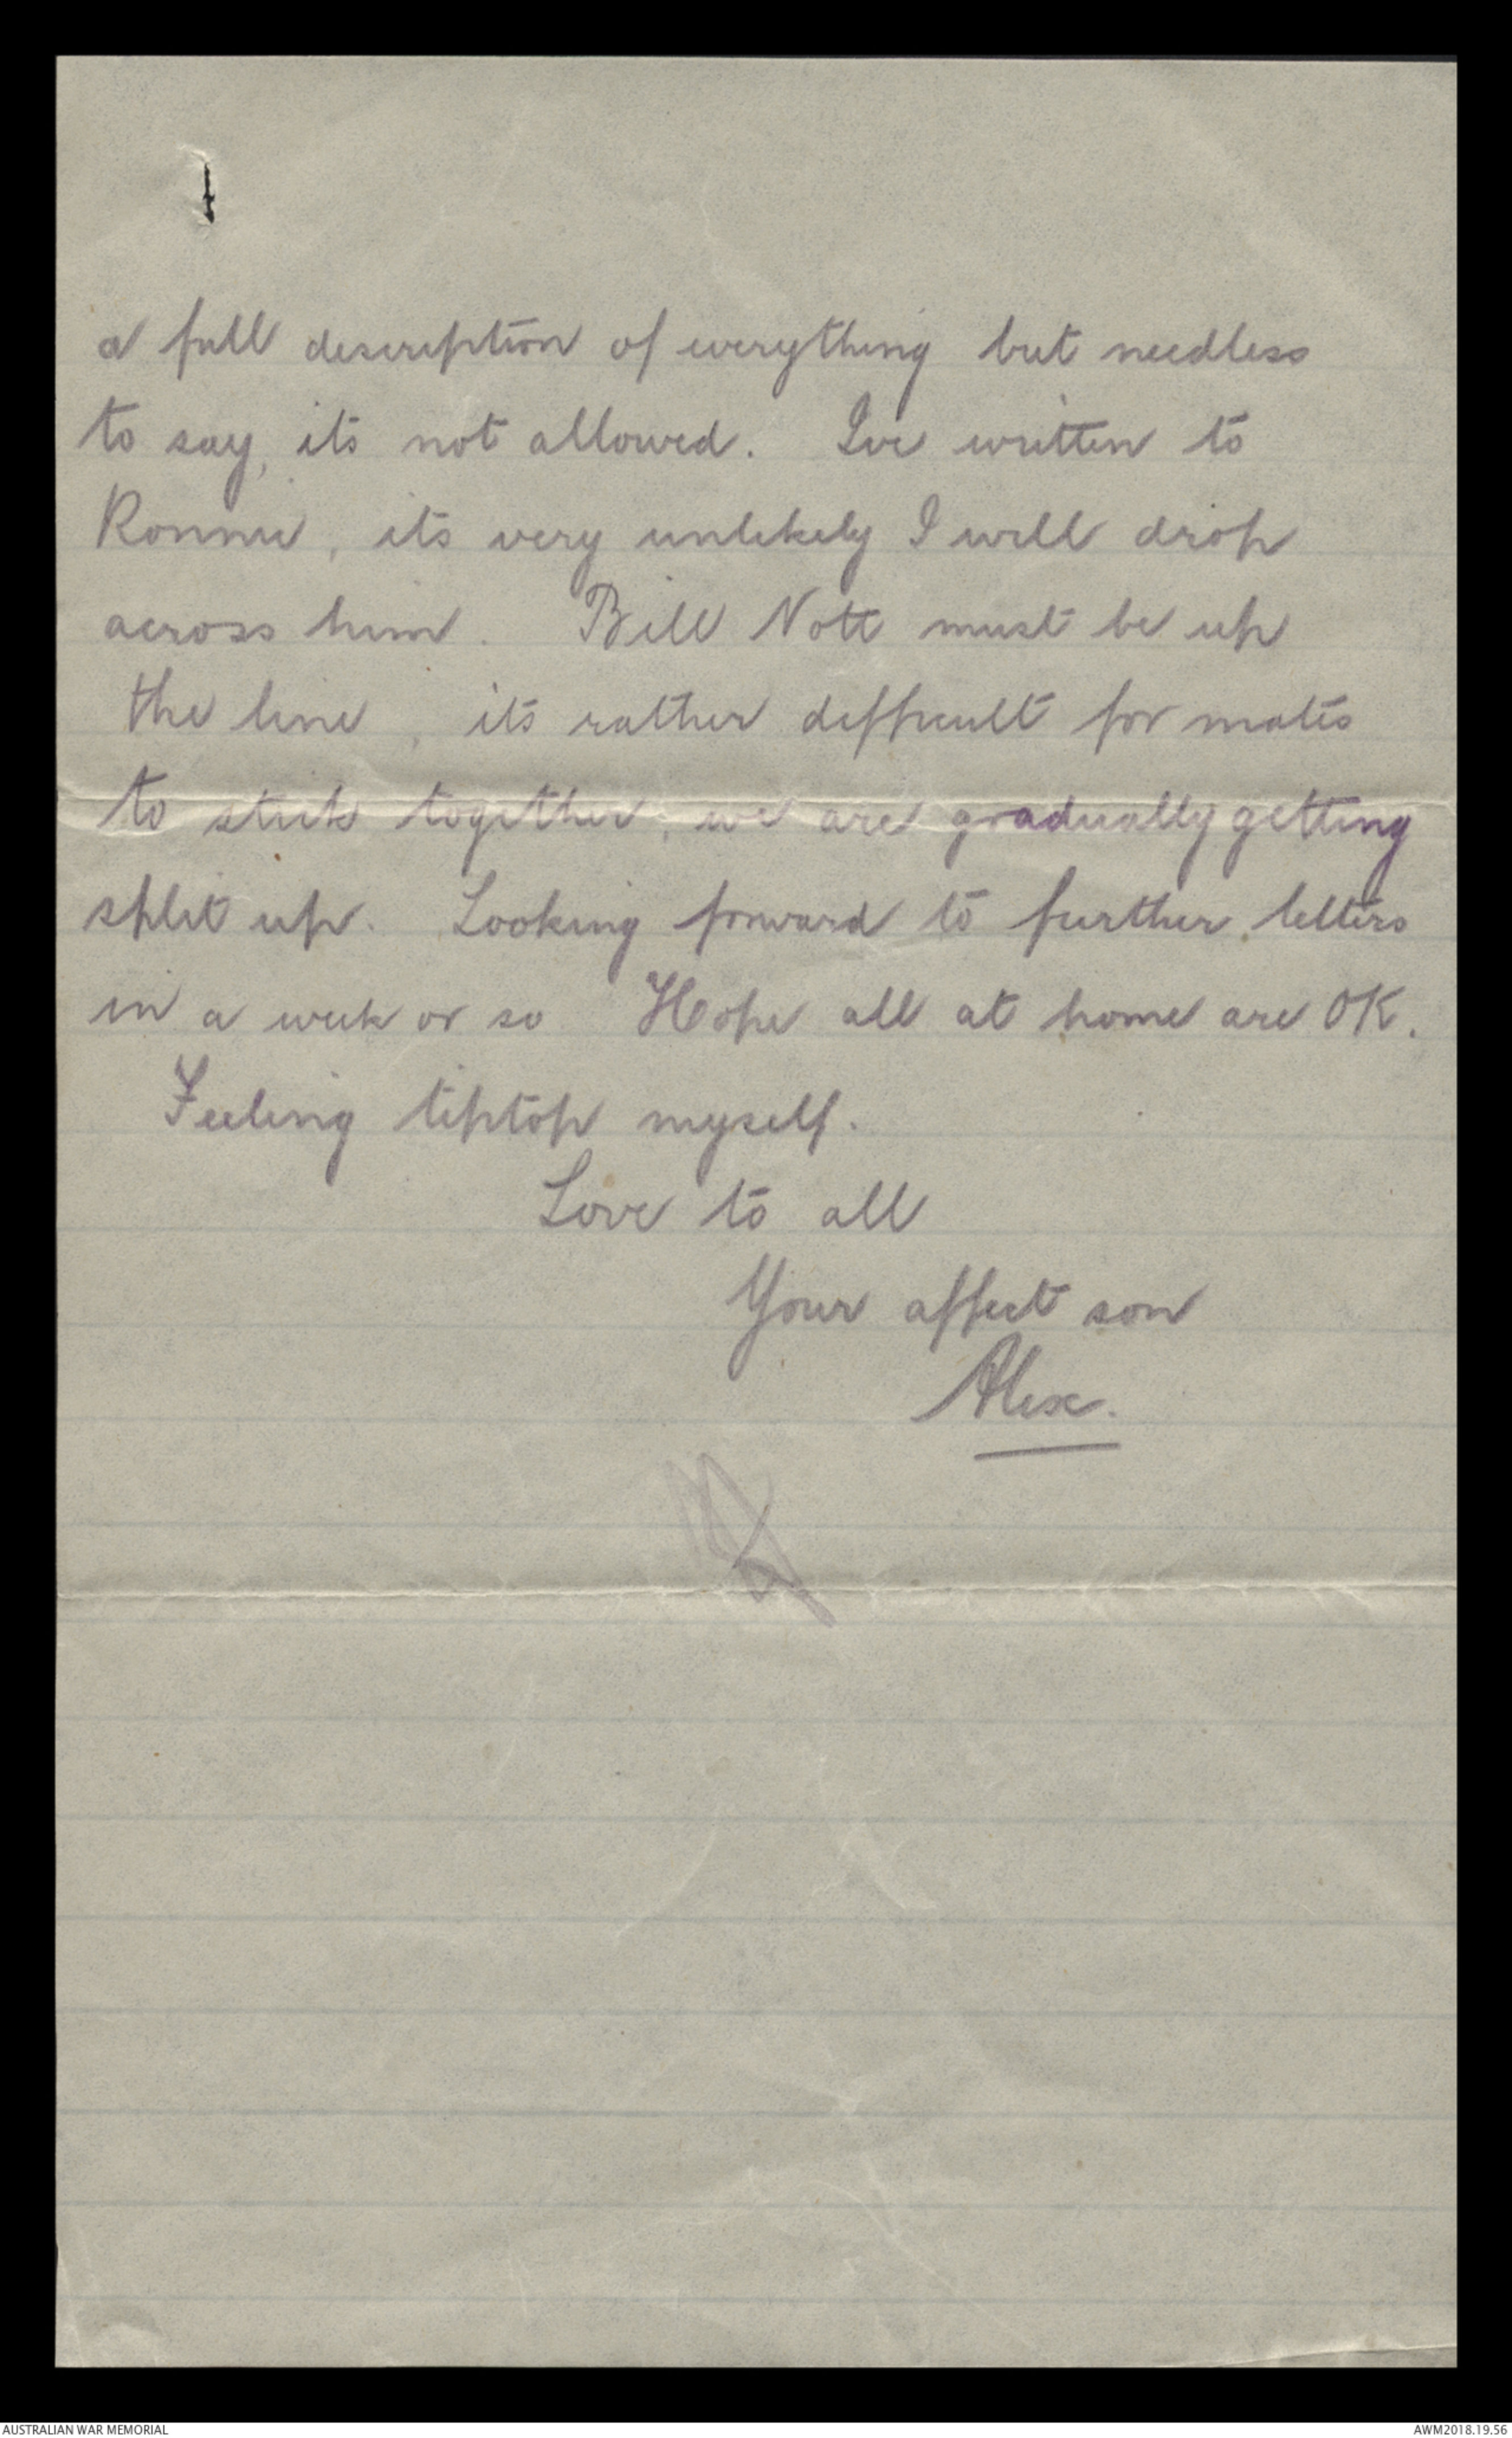 a full description of everything but needless
to say, its not allowed. Ive written to
Ronnie, its very unlikely I will drop
across him. Bill Nott must be up
the line, its rather difficult for mates
to stick together, we are gradually getting
split up. Looking forward to further letters
in a week or so Hope all at home are OK.
Feeling tiptop myself.
Love to all
Your affect son
Alex.
AUSTRALIAN WAR MEMORIAL
AWM2018.19.56